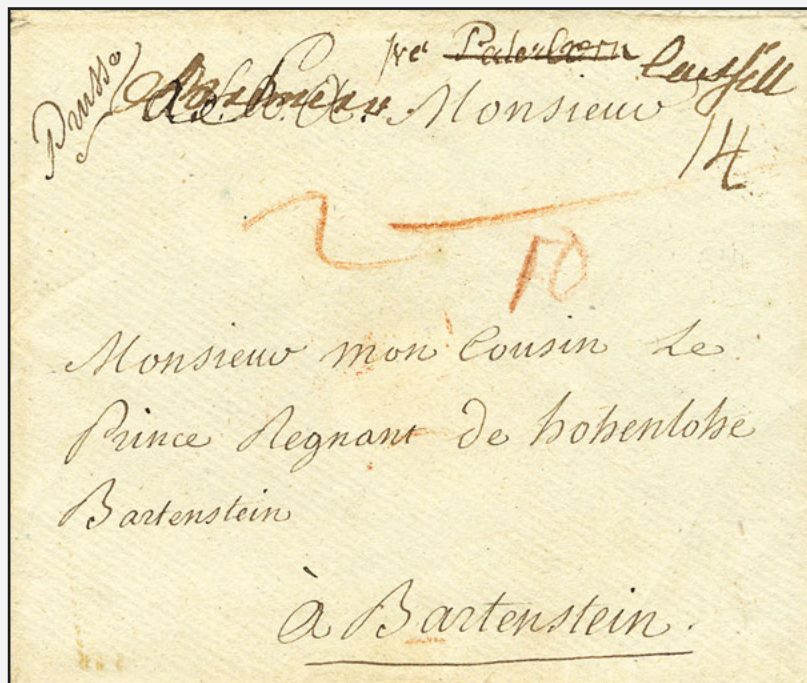 Prusse
pr Paderborn Cassell
Monsieur
14
2
10
Monsieur mon Cousin Le
Prince Regnant de hohenlohe
Bartenstein
à Bartenstein.